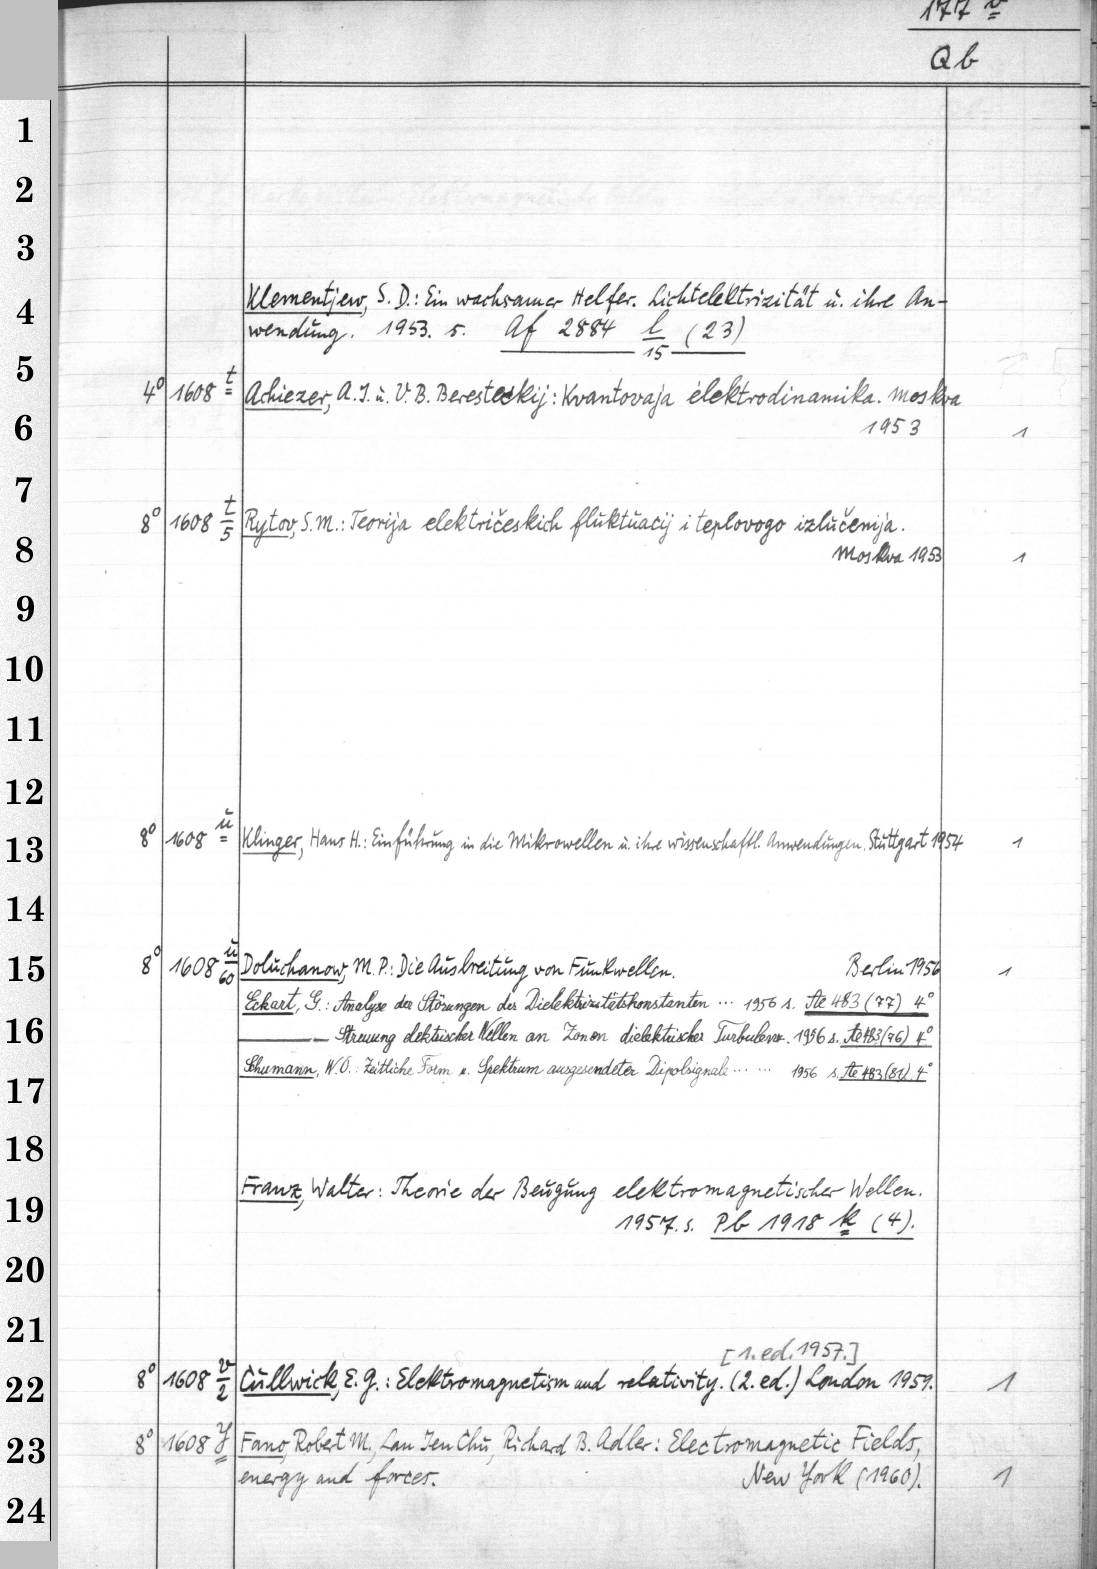 177 v
Qb
1
2
3
4
5
6
7
8
9
10
11
12
13
14
15
16
17
18
19
20
21
22
23
24
Klementjew, S. D.: Ein wachsamer Helfer. Lichtelektrizität u. ihre An-
wendung. 1953. s. Af 2884 l/15 (23)
4° 1608 t Achiezer, A. I. u. V. B. Beresteckij: Kvantovaja elektrodinamika. Moskva
1953 1
8° 1608 t/5 Rytov, S. M.: Teorija električeskich fluktuacij i teplovogo izlučenija.
Moskva 1953 1
8° 1608 u Klinger, Hans H.: Einführung in die Mikrowellen u. ihre wissenschaftl. Anwendungen. Stuttgart 1954 1
8° 1608 u/60 Doluchanow, M. P.: Die Ausbreitung von Funkwellen. Berlin 1956 1
Eckart, G.: Analyse der Störungen der Dielektrizitätskonstanten ... 1956 s. Ae 483 (77) 4°
——— Streuung elektrischer Wellen an Zonen dielektrischer Turbulenz. 1956 s. Ae 483 (76) 4°
Schumann, W. O.: Zeitliche Form u. Spektrum ausgesendeter Dipolsignale ... ... 1956 s. Ae 483 (81) 4°
Franz, Walter: Theorie der Beugung elektromagnetischer Wellen.
1957. s. Pb 1918 k (4).
[1. ed. 1957.]
8° 1608 v/2 Cullwick, E. G.: Elektromagnetism and relativity. (2. ed.) London 1959. 1
8° 1608 y Fano, Robert M., Lan Jen Chu, Richard B. Adler: Electromagnetic Fields,
energy and forces. New York (1960). 1